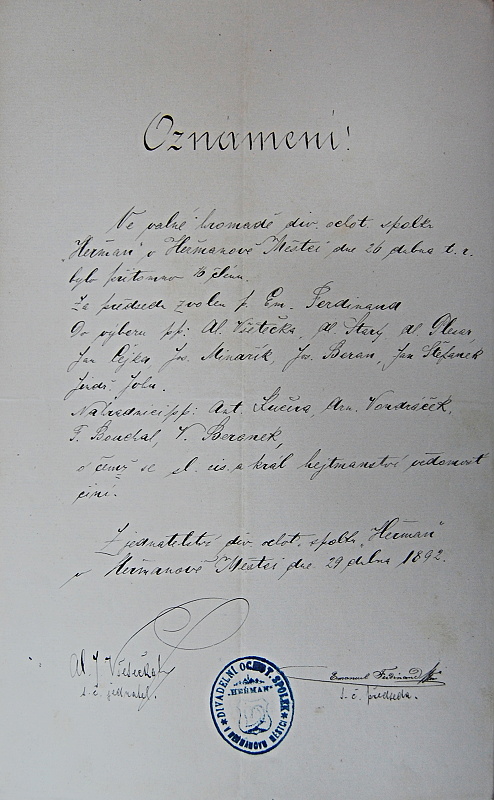 Oznámení!
Ve valné hromadě div. ochot. spolku
"Heřman" v Heřmanově Městci dne 26 dubna t. r.
bylo přítomno členů.
Za předsedu zvolen p. Em. Ferdinand
Do výboru pp: Al. Všetička, Al. Starý, Al.
Jan Čejka, Jos. Minařík, Jos. Beran, Jan Štefánek
Jindř. John.
Náhradníci pp: Ant. Kučera, Arn. Vondráček,
F. Bouchal, V. Beranek,
o čemž se sl. cís. a král hejtmanství vědomost
činí.
Z jednatelství div. ochot. spolku "Heřman"
v Heřmanově Městci dne 29 dubna 1892.
Al. J Všetička
t. č. jednatel.
Emanuel Ferdinand
t. č. předseda.
DIVADELNÍ OCHOT. SPOLEK
"HEŘMAN"
V HEŘMANOVU MĚSTCI